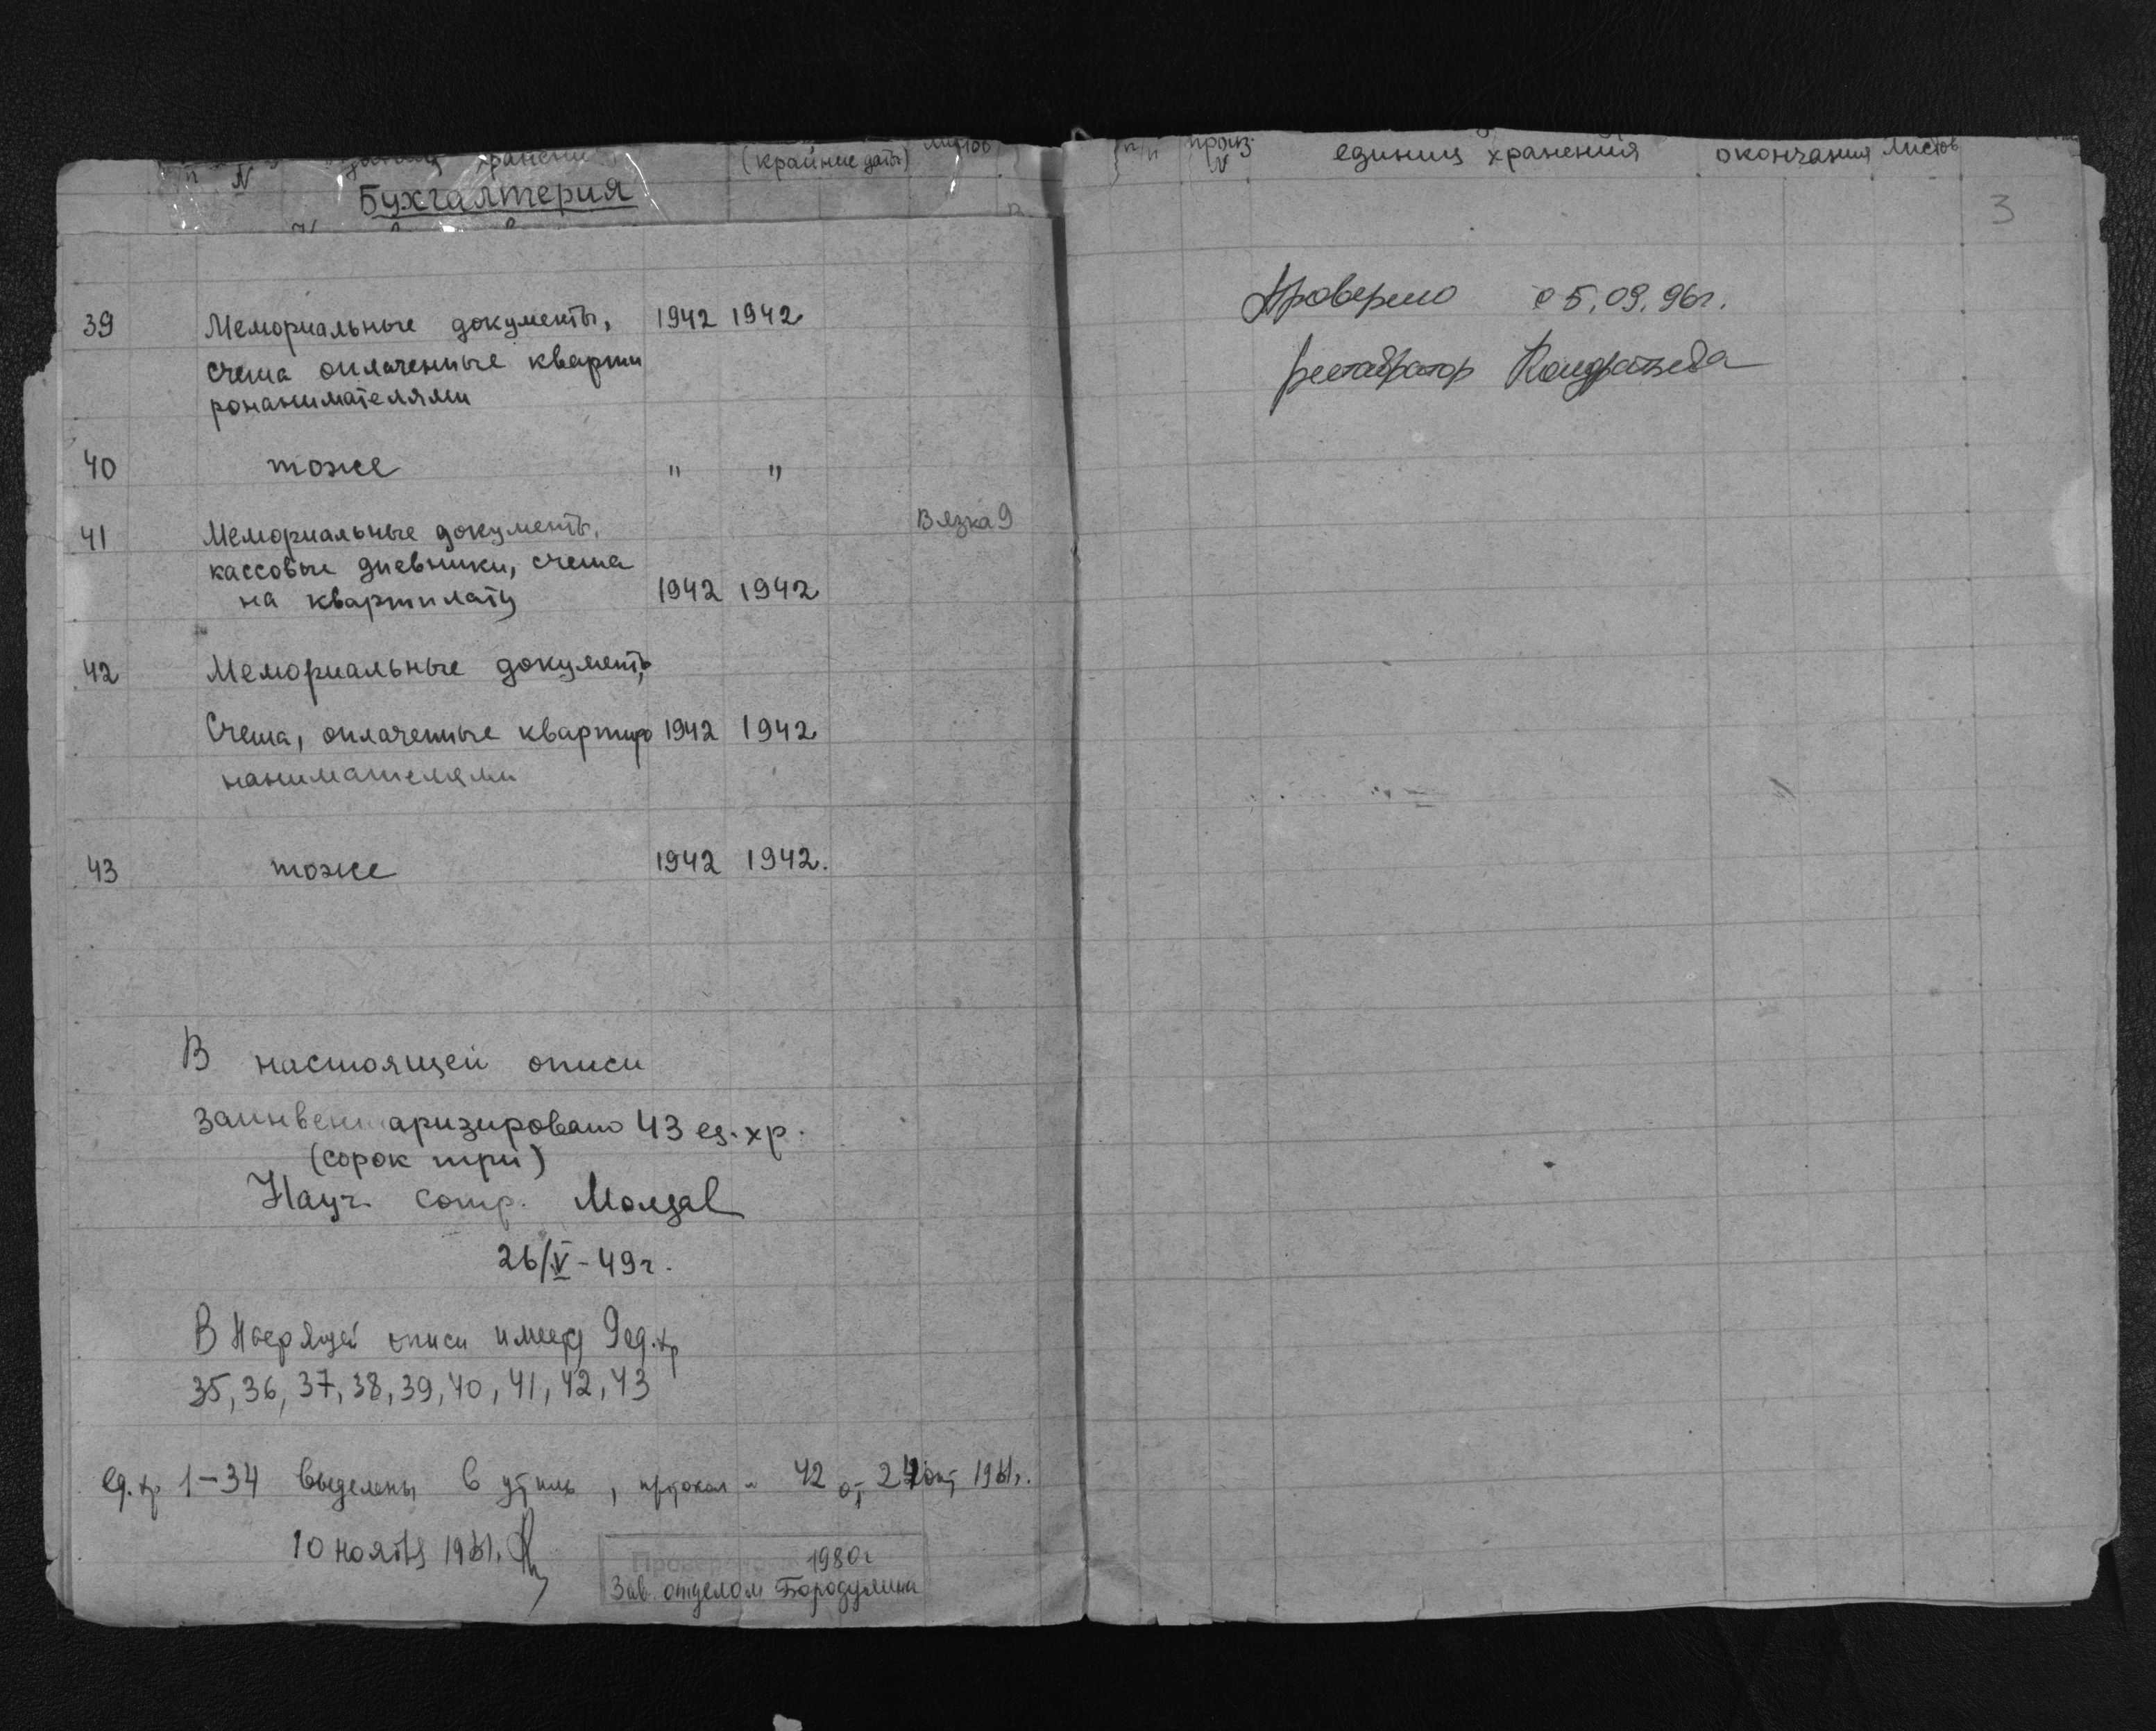 п N хранени (крайние даты) листов
Бухгалтерия
39 Мемориальные документы, 1942 1942
счета оплаченные кварти
ронанимателями
40 тоже " "
41 Мемориальные документы, Вязка 9
кассовые дневники, счета
на квартплату 1942 1942
42 Мемориальные документы,
Счета, оплаченные квартиро 1942 1942
нанимателями
43 тоже 1942 1942.
В настоящей описи
заинвентаризировано 43 ед. хр.
(сорок три)
Науч. сотр. Молдав
26/V-49г.
В описи имеется 9 ед. хр
35, 36, 37, 38, 39, 40, 41, 42, 43
ед. хр 1-34 выделены в утиль, протокол 42 от
10 ноября
1980г
Зав. отделом Бородулина
п/п произ. N единиц хранения окончания листов
3
Проверено 05.09.96г.
реставратор Кондратьева